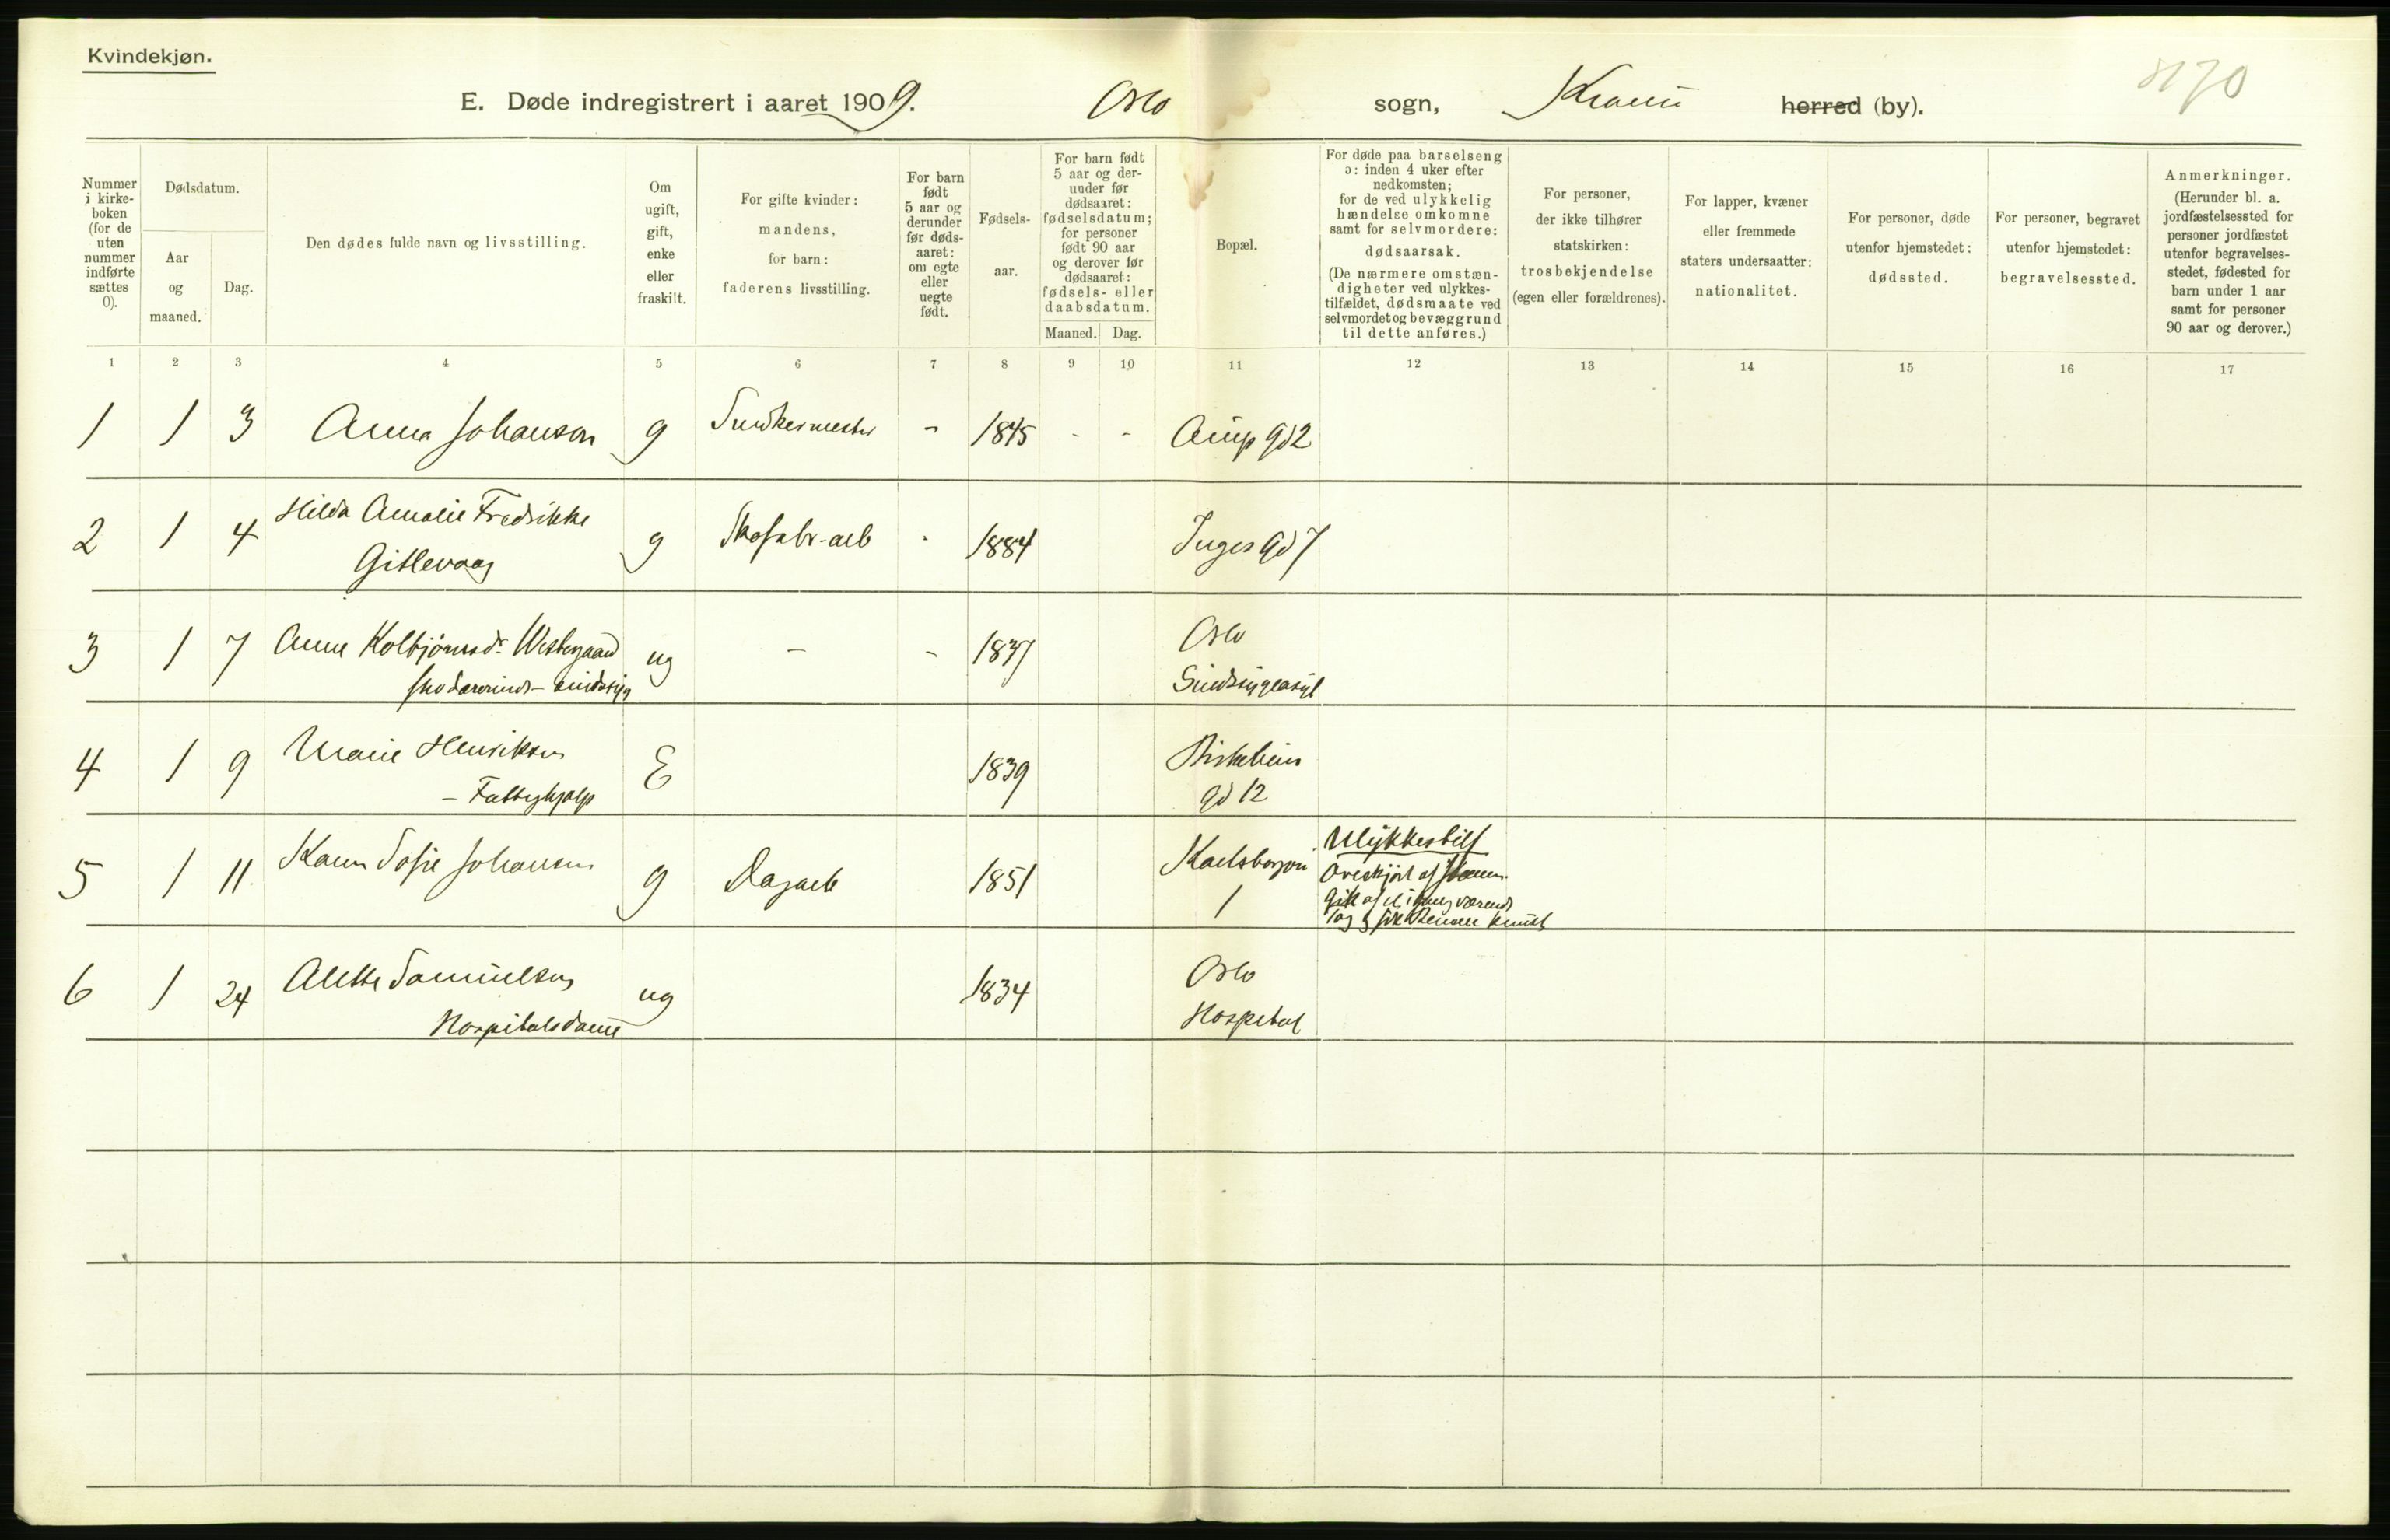 Kvindekjøn.
E. Døde indregistrert i aaret 1909. Oslo sogn, herred (by).
Nummer i kirke- boken (for de uten nummer indførte sættes 0).
Dødsdatum.
Aar og maaned.
Dag.
Den dødes fulde navn og livsstilling.
Om ugift, gift, enke eller fraskilt.
For gifte kvinder: mandens, for barn: faderens livsstilling.
For barn født 5 aar og derunder før døds- aaret: om egte eller uegte født.
Fødsels- aar.
For barn født 5 aar og der- under før dødsaaret: fødselsdatum; for personer født 90 aar og derover før dødsaaret: fødsels- eller daabsdatum.
Maaned. Dag.
Bopæl.
For døde paa barselseng ɔ: inden 4 uker efter nedkomsten; for de ved ulykkelig hændelse omkomne samt for selvmordere: dødsaarsak. (De nærmere omstæn- digheter ved ulykkes- tilfældet, dødsmaate ved selvmordet og bevæggrund til dette anføres.)
For personer, der ikke tilhører statskirken: trosbekjendelse (egen eller forældrenes).
For lapper, kvæner eller fremmede staters undersaatter: nationalitet.
For personer, døde utenfor hjemstedet: dødssted.
For personer, begravet utenfor hjemstedet: begravelsessted.
Anmerkninger. (Herunder bl. a. jordfæstelsessted for personer jordfæstet utenfor begravelses- stedet, fødested for barn under 1 aar samt for personer 90 aar og derover.)
1 2 3 4 5 6 7 8 9 10 11 12 13 14 15 16 17
1 1 3 Anna Johanson g Snedkermester - 1845 - - gd 2
2 1 4 Hilda Amalie Fredrikke g Skofabr-arb - 1884 Inges gd 7
Gitlevaag
3 1 7 Anne Kolbjørnsdr. Westergaard ug - - 1837 Oslo
sindssyg Sindssygeasyl
4 1 9 Marie Henriksen E 1839
- Fattighjælp gd 12
5 1 11 Karen Sofie Johansen g Dagarb 1851 Karlsborgvei 1 Ulykkestilf
Overkjørt af
Gik af et i gang værend
Tog & fik knust
6 1 24 Alette Samuelsen ug 1834 Oslo
Hospitalsdame Hospital